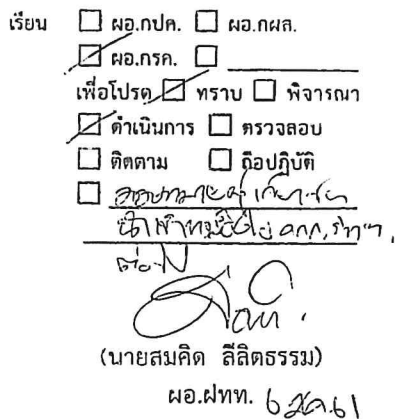 เรียน ☐ ผอ.กปค. ☐ ผอ.กผส.
☑ ผอ.กรค. ☐
เพื่อโปรด ☑ ทราบ ☐ พิจารณา
☑ ดำเนินการ ☐ ตรวจสอบ
☐ ติดตาม ☐ ถือปฏิบัติ
☐
ต่อไป
(นายสมคิด ลีลิตธรรม)
ผอ.ฝทท. 6 ธค.61